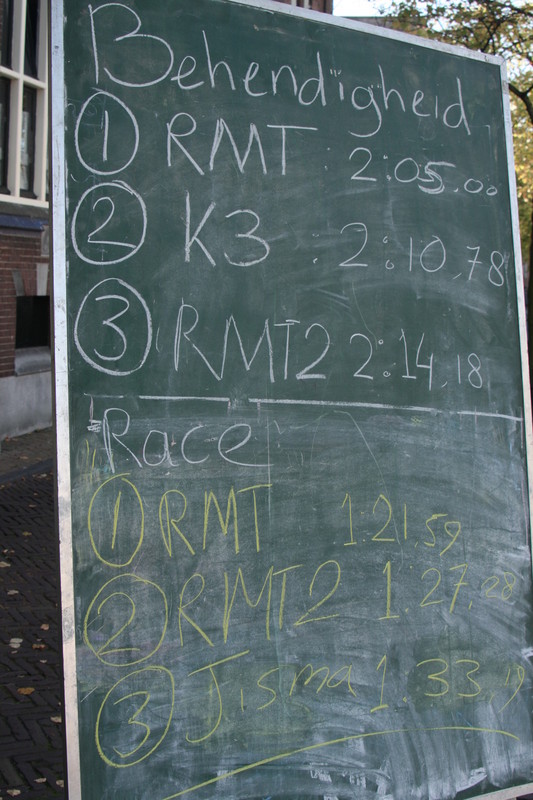 Behendigheid
1 RMT : 2:05.00
2 K3 : 2:10,78
3 RMT2 2:14,18
Race
1 RMT 1:21,59
2 RMT2 1.27,28
3 Jisma 1.33,19